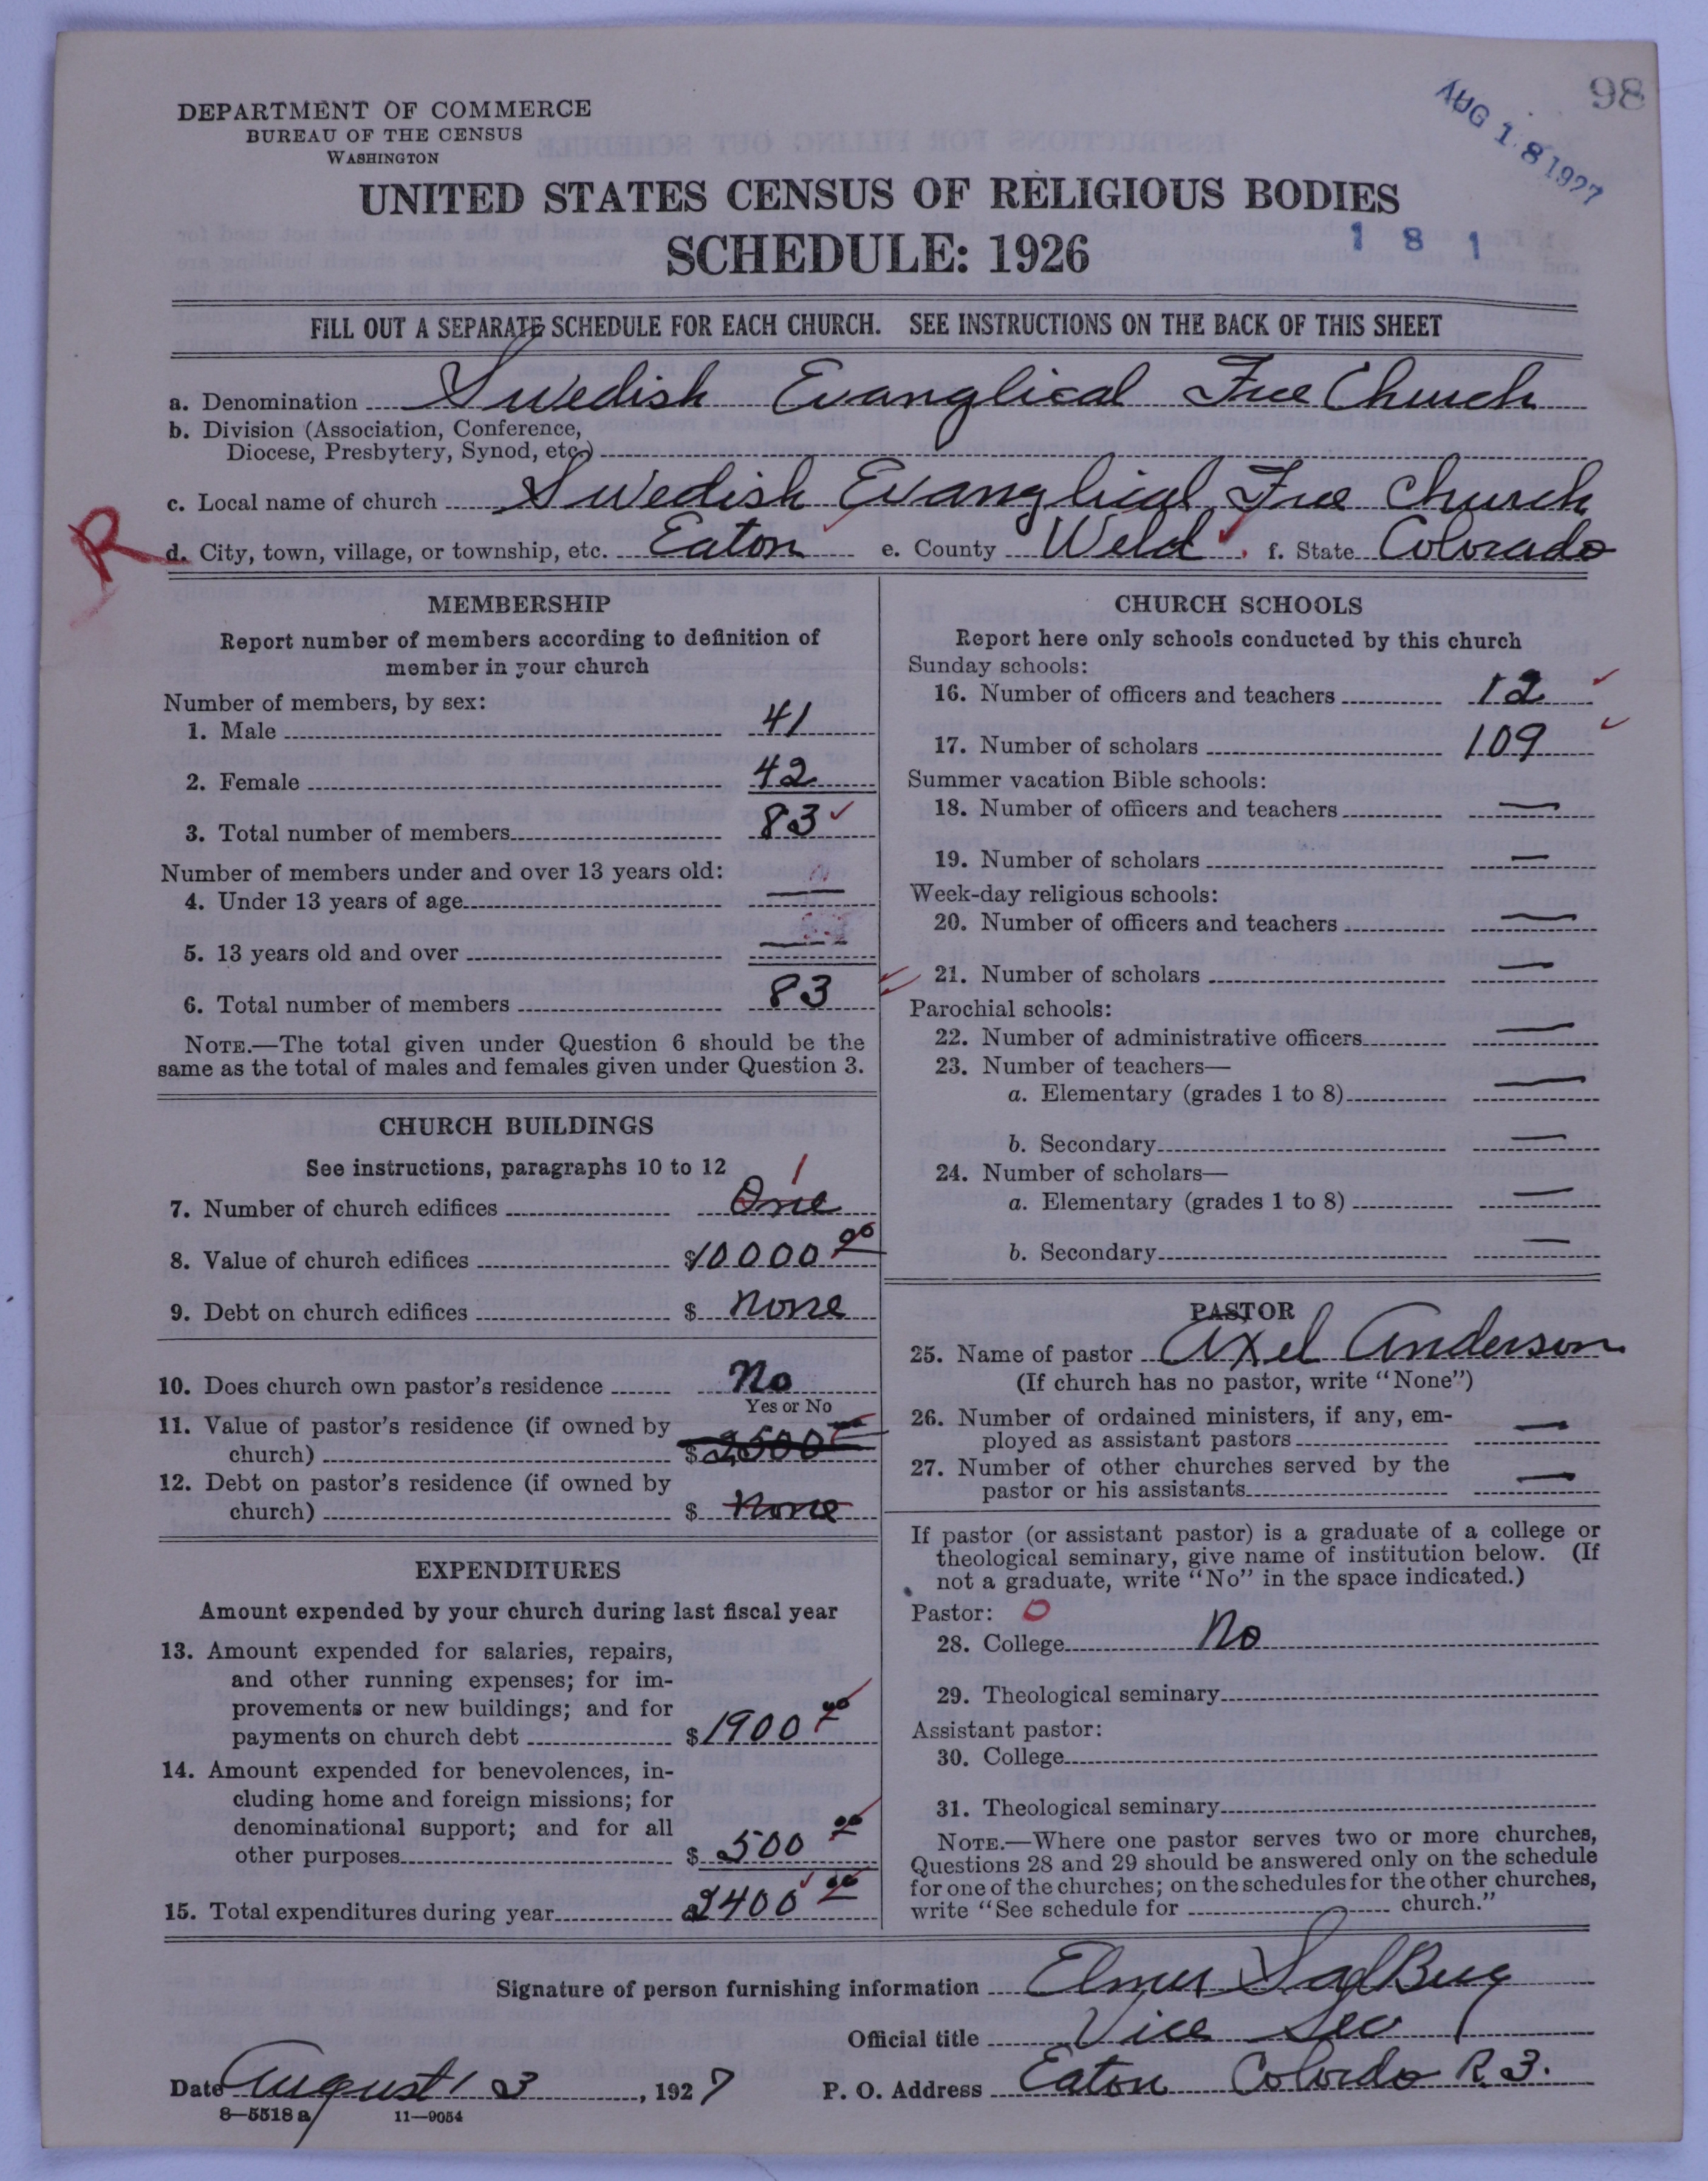 98
AUG 18 1927
DEPARTMENT OF COMMERCE
BUREAU OF THE CENSUS
WASHINGTON
UNITED STATES CENSUS OF RELIGIOUS BODIES
SCHEDULE: 1926
1 8 1
FILL OUT A SEPARATE SCHEDULE FOR EACH CHURCH. SEE INSTRUCTIONS ON THE BACK OF THIS SHEET
a. Denomination Swedish Evanglical Free Church
b. Division (Association, Conference,
Diocese, Presbytery, Synod, etc.)
c. Local name of church Swedish Evanglical Free Church
R
d. City, town, village, or township, etc. Eaton e. County Weld f. State Colorado
MEMBERSHIP
Report number of members according to definition of
member in your church
Number of members, by sex:
1. Male 41
2. Female 42
3. Total number of members 83
Number of members under and over 13 years old:
4. Under 13 years of age —
5. 13 years old and over —
6. Total number of members 83
NOTE.—The total given under Question 6 should be the
same as the total of males and females given under Question 3.
CHURCH BUILDINGS
See instructions, paragraphs 10 to 12
1
7. Number of church edifices One
8. Value of church edifices $10000 00
9. Debt on church edifices $ None
10. Does church own pastor's residence No
Yes or No
11. Value of pastor's residence (if owned by
church) $2500
12. Debt on pastor's residence (if owned by
church) $ None
EXPENDITURES
Amount expended by your church during last fiscal year
13. Amount expended for salaries, repairs,
and other running expenses; for im-
provements or new buildings; and for
payments on church debt $1900 00
14. Amount expended for benevolences, in-
cluding home and foreign missions; for
denominational support; and for all
other purposes $ 500 00
15. Total expenditures during year 2400 00
CHURCH SCHOOLS
Report here only schools conducted by this church
Sunday schools:
16. Number of officers and teachers 12
17. Number of scholars 109
Summer vacation Bible schools:
18. Number of officers and teachers —
19. Number of scholars —
Week-day religious schools:
20. Number of officers and teachers —
21. Number of scholars —
Parochial schools:
22. Number of administrative officers —
23. Number of teachers—
a. Elementary (grades 1 to 8) —
b. Secondary —
24. Number of scholars—
a. Elementary (grades 1 to 8) —
b. Secondary —
PASTOR
25. Name of pastor Axel Anderson
(If church has no pastor, write "None")
26. Number of ordained ministers, if any, em-
ployed as assistant pastors —
27. Number of other churches served by the
pastor or his assistants —
If pastor (or assistant pastor) is a graduate of a college or
theological seminary, give name of institution below. (If
not a graduate, write "No" in the space indicated.)
Pastor: 0
28. College No
29. Theological seminary
Assistant pastor:
30. College
31. Theological seminary
NOTE.—Where one pastor serves two or more churches,
Questions 28 and 29 should be answered only on the schedule
for one of the churches; on the schedules for the other churches,
write "See schedule for church."
Signature of person furnishing information Elmer
Official title Vice Sec
Date August 13, 1927 P. O. Address Eaton Colordo R. 3.
8—5518 a 11—9054